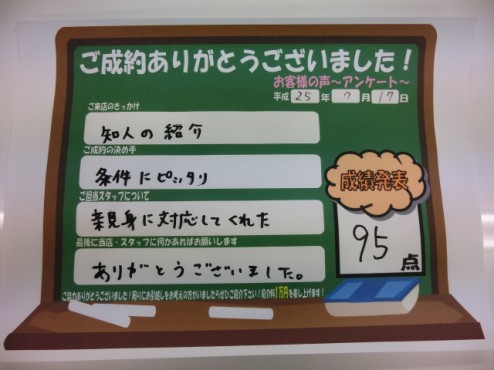 ご成約ありがとうございました!
お客様の声～アンケート～
平成 25 年 7 月 17 日
ご来店のきっかけ
知人の紹介
ご成約の決め手
条件にピッタリ
ご担当スタッフについて
親身に対応してくれた
成績発表
95 点
最後に当店・スタッフに何かあればお願いします
ありがとうございました。
ご協力ありがとうございました!周りにお引越しをお考えの方がいましたらぜひご紹介下さい!紹介料1万円を差し上げます!